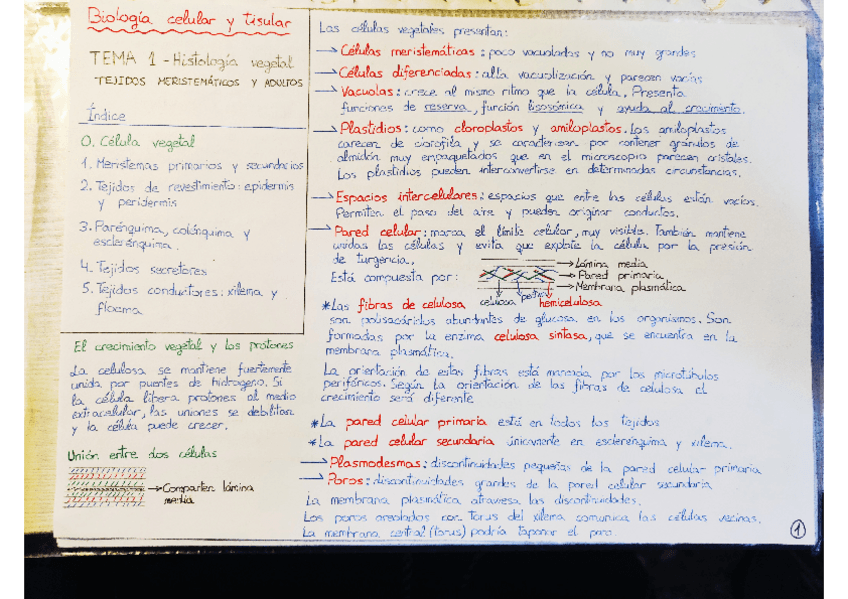 Biología celular y tisular
TEMA 1 - Histología vegetal
TEJIDOS MERISTEMÁTICOS Y ADULTOS
Índice
0. Célula vegetal
1. Meristemas primarios y secundarios
2. Tejidos de revestimiento: epidermis
y peridermis
3. Parénquima, colénquima y
esclerénquima.
4. Tejidos secretores
5. Tejidos conductores: xilema y
floema
El crecimiento vegetal y los protones
La celulosa se mantiene fuertemente
unida por puentes de hidrógeno. Si
la célula libera protones al medio
extracelular, las uniones se debilitan
y la célula puede crecer.
Unión entre dos células
Comparten lámina
media
Las células vegetales presentan:
→ Células meristemáticas: poco vacuoladas y no muy grandes
→ Células diferenciadas: alta vacuolización y parecen vacías
→ Vacuolas: crece al mismo ritmo que la célula. Presenta
funciones de reserva, función lisosómica y ayuda al crecimiento.
→ Plastidios: como cloroplastos y amiloplastos. Los amiloplastos
carecen de clorofila y se caracterizan por contener gránulos de
almidón muy empaquetados que en el microscopio parecen cristales.
Los plastidios pueden interconvertirse en determinadas circunstancias.
→ Espacios intercelulares: espacios que entre las células están vacíos.
Permiten el paso del aire y pueden originar conductos.
→ Pared celular: marca el límite celular, muy visible. También mantiene
unidas las células y evita que explote la célula por la presión
de turgencia.
Está compuesta por:
→ Lámina media
→ Pared primaria
→ Membrana plasmática
celulosa pectina hemicelulosa
*Las fibras de celulosa
son polisacáridos abundantes de glucosa en los organismos. Son
formadas por la enzima celulosa sintasa, que se encuentra en la
membrana plasmática.
La orientación de estas fibras está marcada por los microtúbulos
periféricos. Según la orientación de las fibras de celulosa el
crecimiento será diferente
*La pared celular primaria está en todos los tejidos
*La pared celular secundaria únicamente en esclerénquima y xilema.
→ Plasmodesmas: discontinuidades pequeñas de la pared celular primaria
→ Poros: discontinuidades grandes de la pared celular secundaria
La membrana plasmática atraviesa las discontinuidades.
Los poros areolados con Torus del xilema comunica las células vecinas.
La membrana central (torus) podría taponar el poro
1